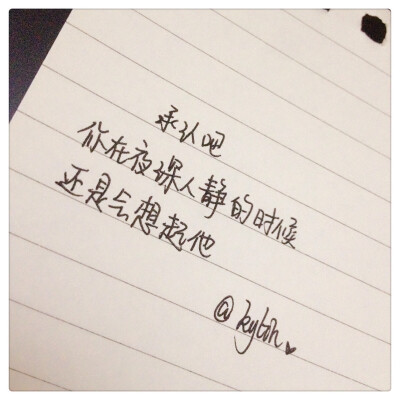 承认吧
你在夜深人静的时候
还是会想起他